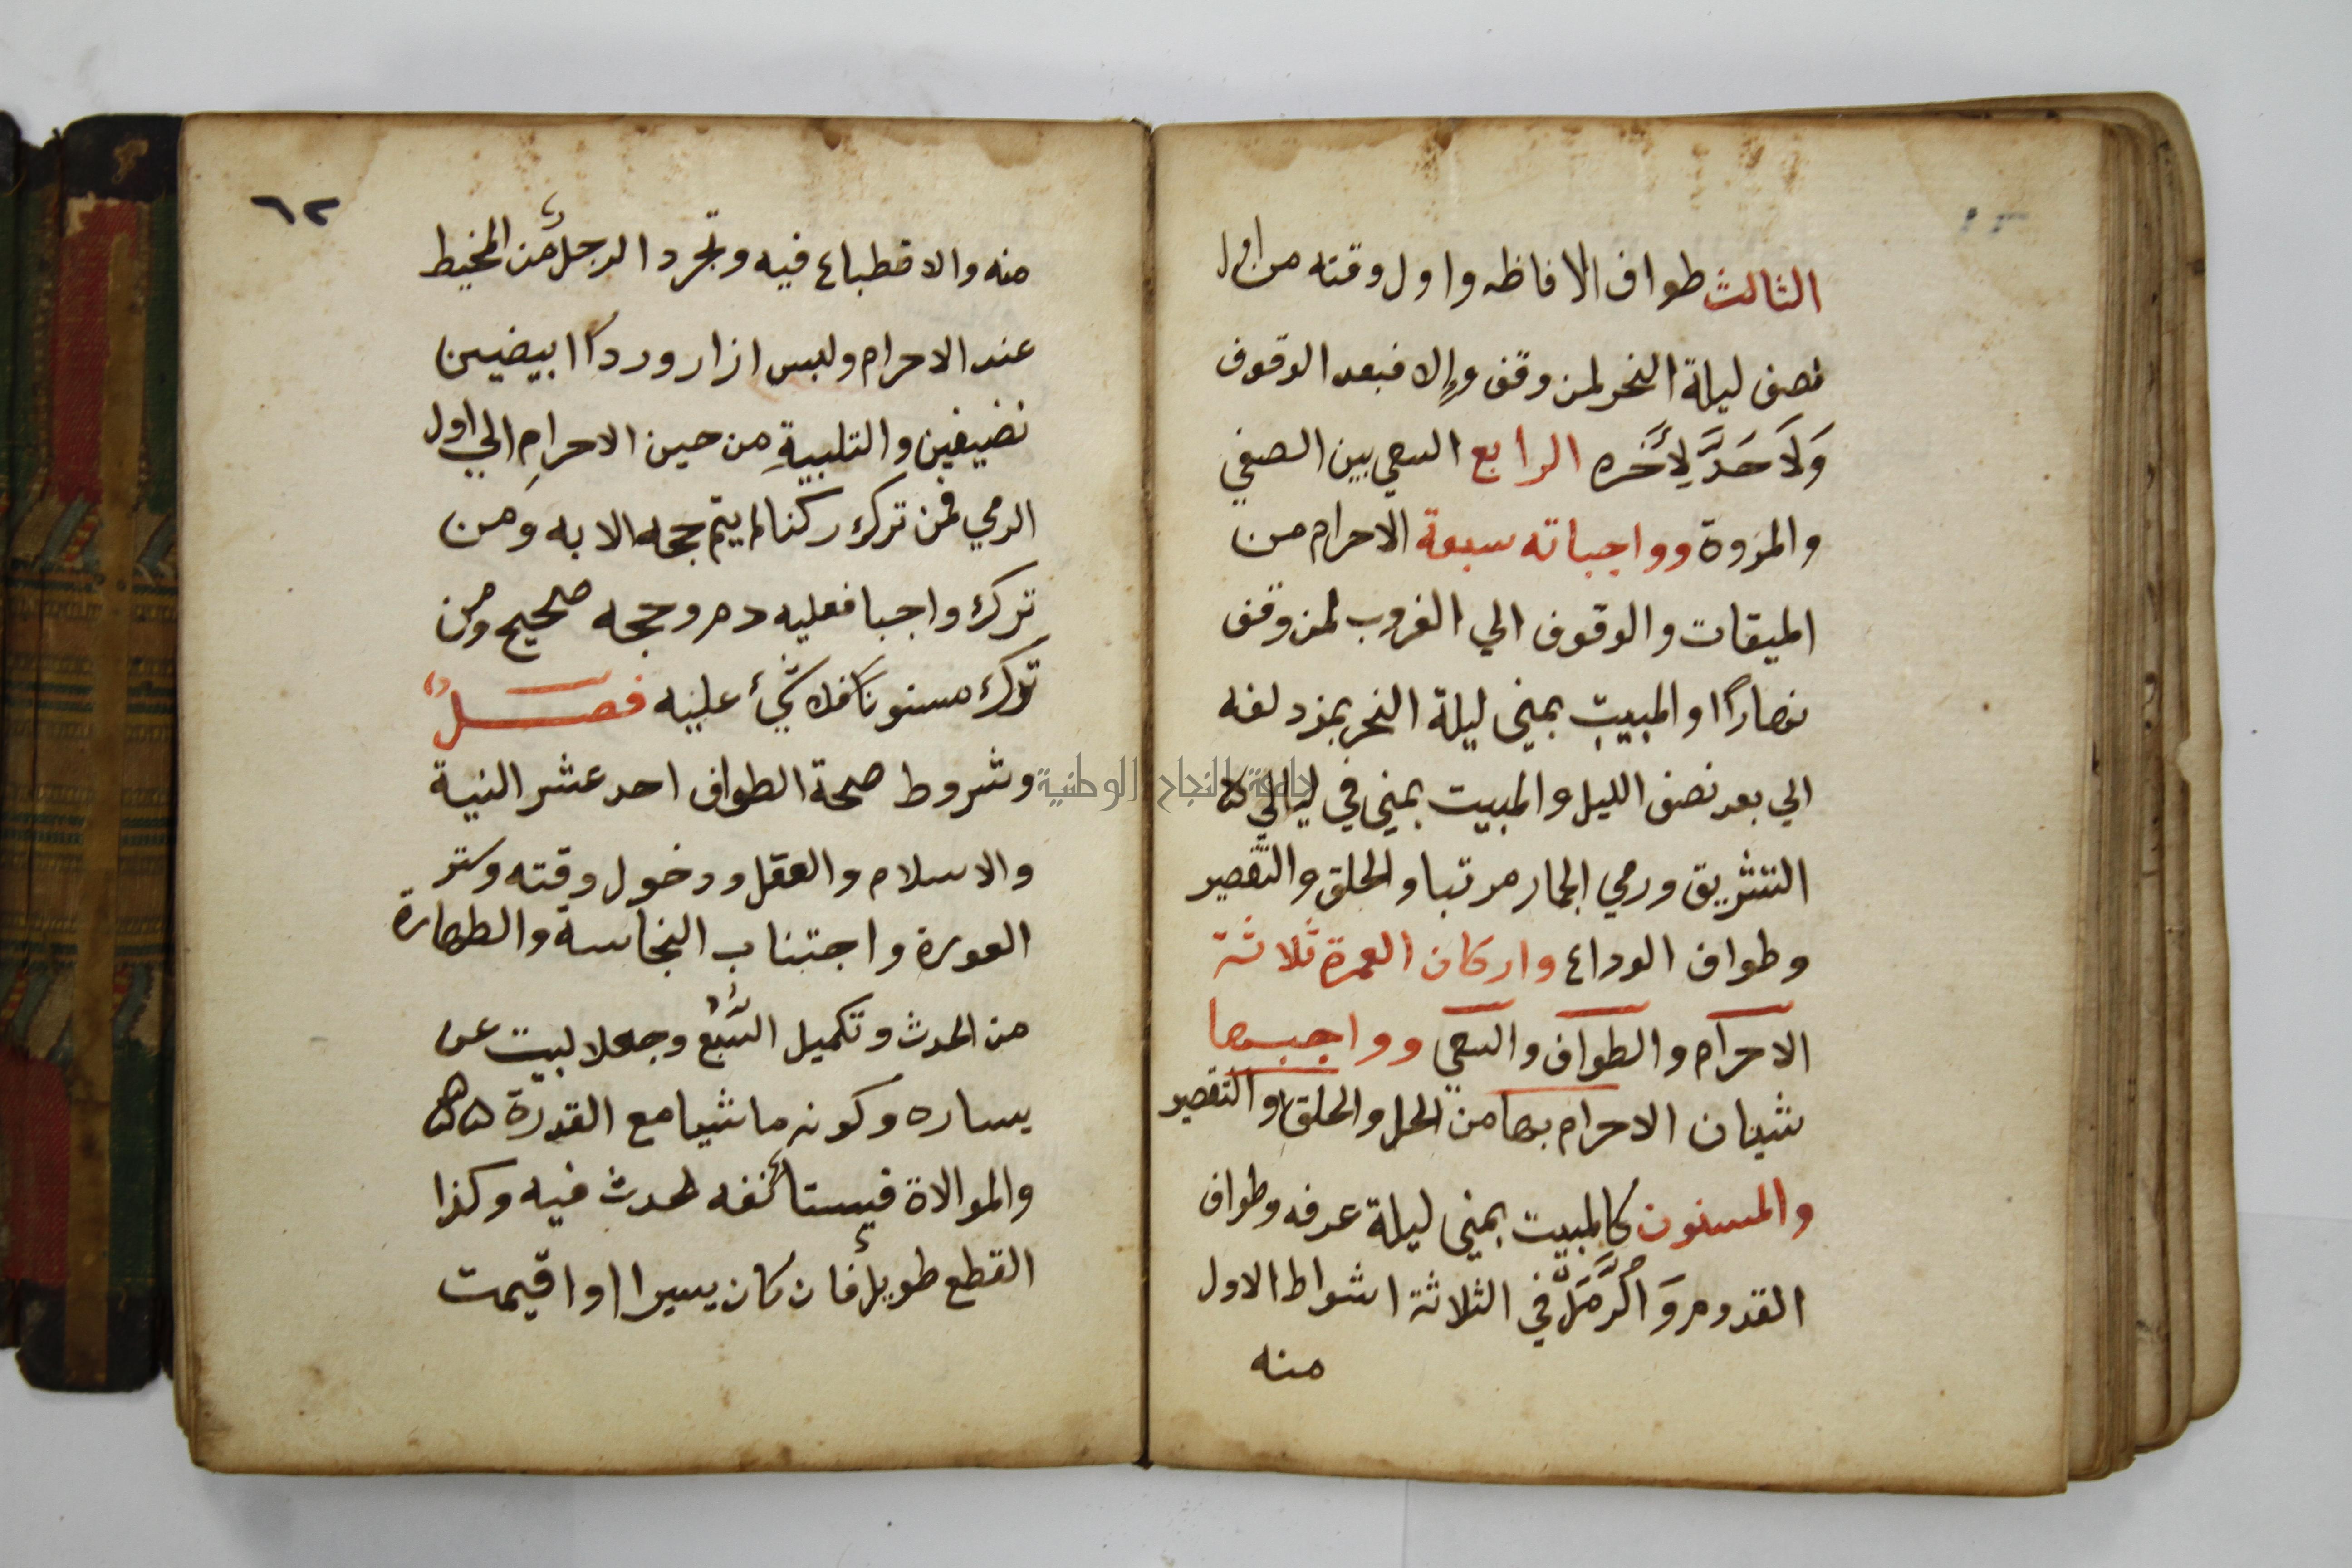 الثالث طواف الافاظه واول وقته من اول
نصف ليلة النحر لمن وقف وإلا فبعد الوقوف
وَلَا حَدَّ لِأَخره الرابع السعي بين الصفي
والمروة وواجباته سبعة الاحرام من
الميقات والوقوف الي الغروب لمن وقف
نهارًا والمبيت بمني ليلة النحر بمزدلفه
الي بعد نصف الليل والمبيت بمني في ليالي
التشريق ورمي الجمار مرتبا والحلق والتقصير
وطواف الوداع واركان العمرة ثلاثة
الاحرام والطواف والسعي وواجبها
شيان الاحرام بها من الحل والحلق او التقصير
والمسنون كالمبيت بمني ليلة عرفه وطواف
القدوم وَالرَّمَل في الثلاثة اشواط الاول
منه
٦٢
منه والاقطباع فيه وتجرد الرجل من المخيط
عند الاحرام ولبس ازار وردا ابيضين
نضيفين والتلبيةِ من حين الاحرامِ الي اول
الرمي فمن ترك ركنا لم يتم حجه الا به ومن
ترك واجبا فعليه دم وحجه صحيح ومن
ترك مسنونا فلا شيء عليه فصل
وشروط صحة الطواف احد عشر النية
والاسلام والعقل ودخول وقته وستر
العورة واجتناب النجاسة والطهارة
من الحدث وتكميل السَّبْع وجعلا لبيت عن
يساره وكونه ماشيا مع القدرة
والموالاة فيستأنفه لحدث فيه وكذا
القطع طويل فان كان يسيرا او اقيمت
جامعة النجاح الوطنية